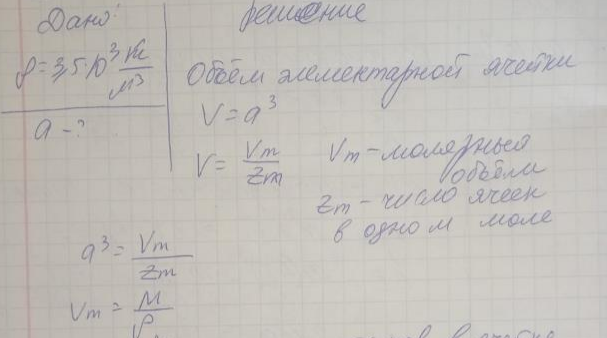 Дано:
ρ = 3,5·10³ кг/м³
a - ?
решение
Объём элементарной ячейки
V = a³
V = Vm/Zm
Vm - молярный объём
Zm - число ячеек в одном моле
a³ = Vm/Zm
Vm = M/ρ
в ячейке